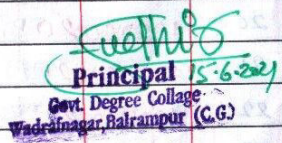 Principal 15-6-2021
Govt. Degree Collage
Wadrafnagar, Balrampur (C.G.)